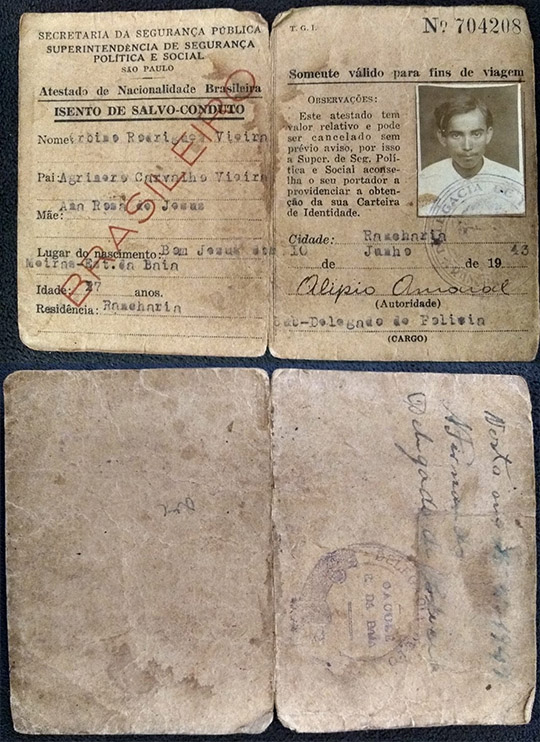 SECRETARIA DA SEGURANÇA PÚBLICA
SUPERINTENDÊNCIA DE SEGURANÇA
POLÍTICA E SOCIAL
SÃO PAULO
Atestado de Nacionalidade Brasileira
ISENTO DE SALVO-CONDUTO
BRASILEIRO
Nome: Rodrigues Vieira
Pai: Agrimero Carvalho Vieira
Mãe: Ana Rosa de Jesus
Lugar do nascimento: Bom Jesus dos
Meiras-Est.da Baia
Idade: 27 anos.
Residência: Rancharia
T. G. I.
Nº 704208
Somente válido para fins de viagem
OBSERVAÇÕES:
Este atestado tem
valor relativo e pode
ser cancelado sem
prévio aviso, por isso
a Super. de Seg. Polí-
tica e Social aconse-
lha o seu portador a
providenciar a obten-
ção da sua Carteira
de Identidade.
Cidade: Rancharia
10 de Junho de 19 43
Alipio Amaral
(Autoridade)
Sub-Delegado de Policia
(CARGO)
Delegado de Policia
E. DA BAIA